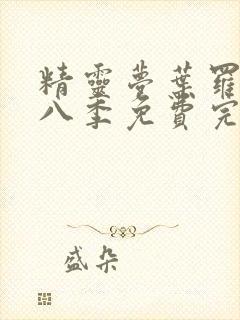 精靈夢葉羅
八季免費完
盛朵